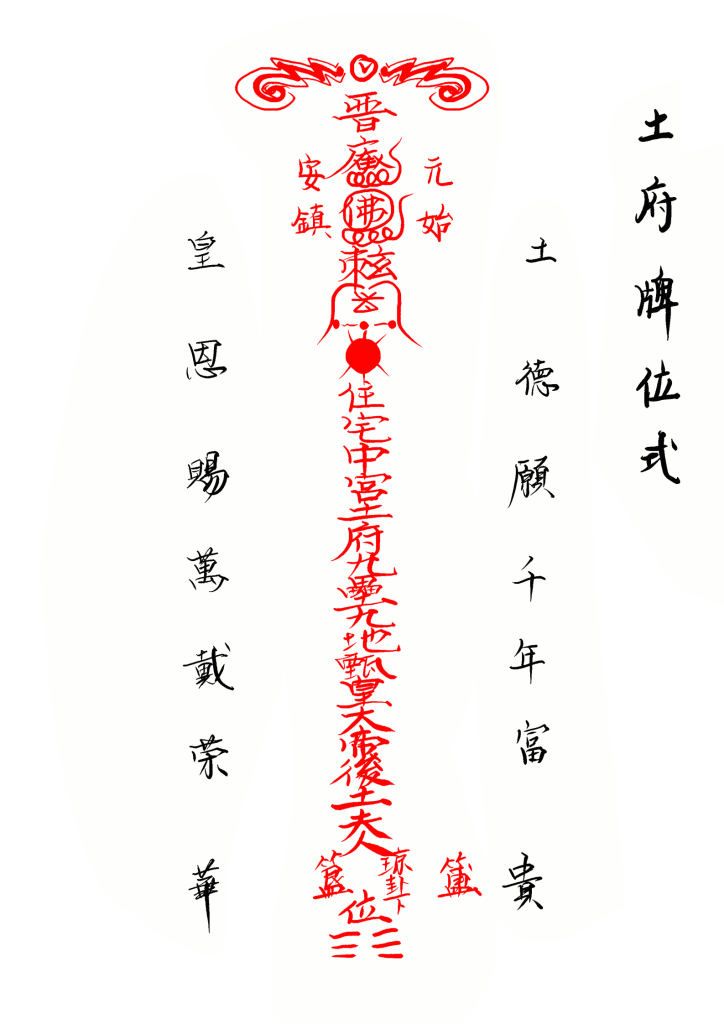 土府牌位式
土德願千年富貴
元始
安鎮
佛
住宅中宮土府九壘九地
皇大帝後土夫人
位
皇恩賜萬戴荣華